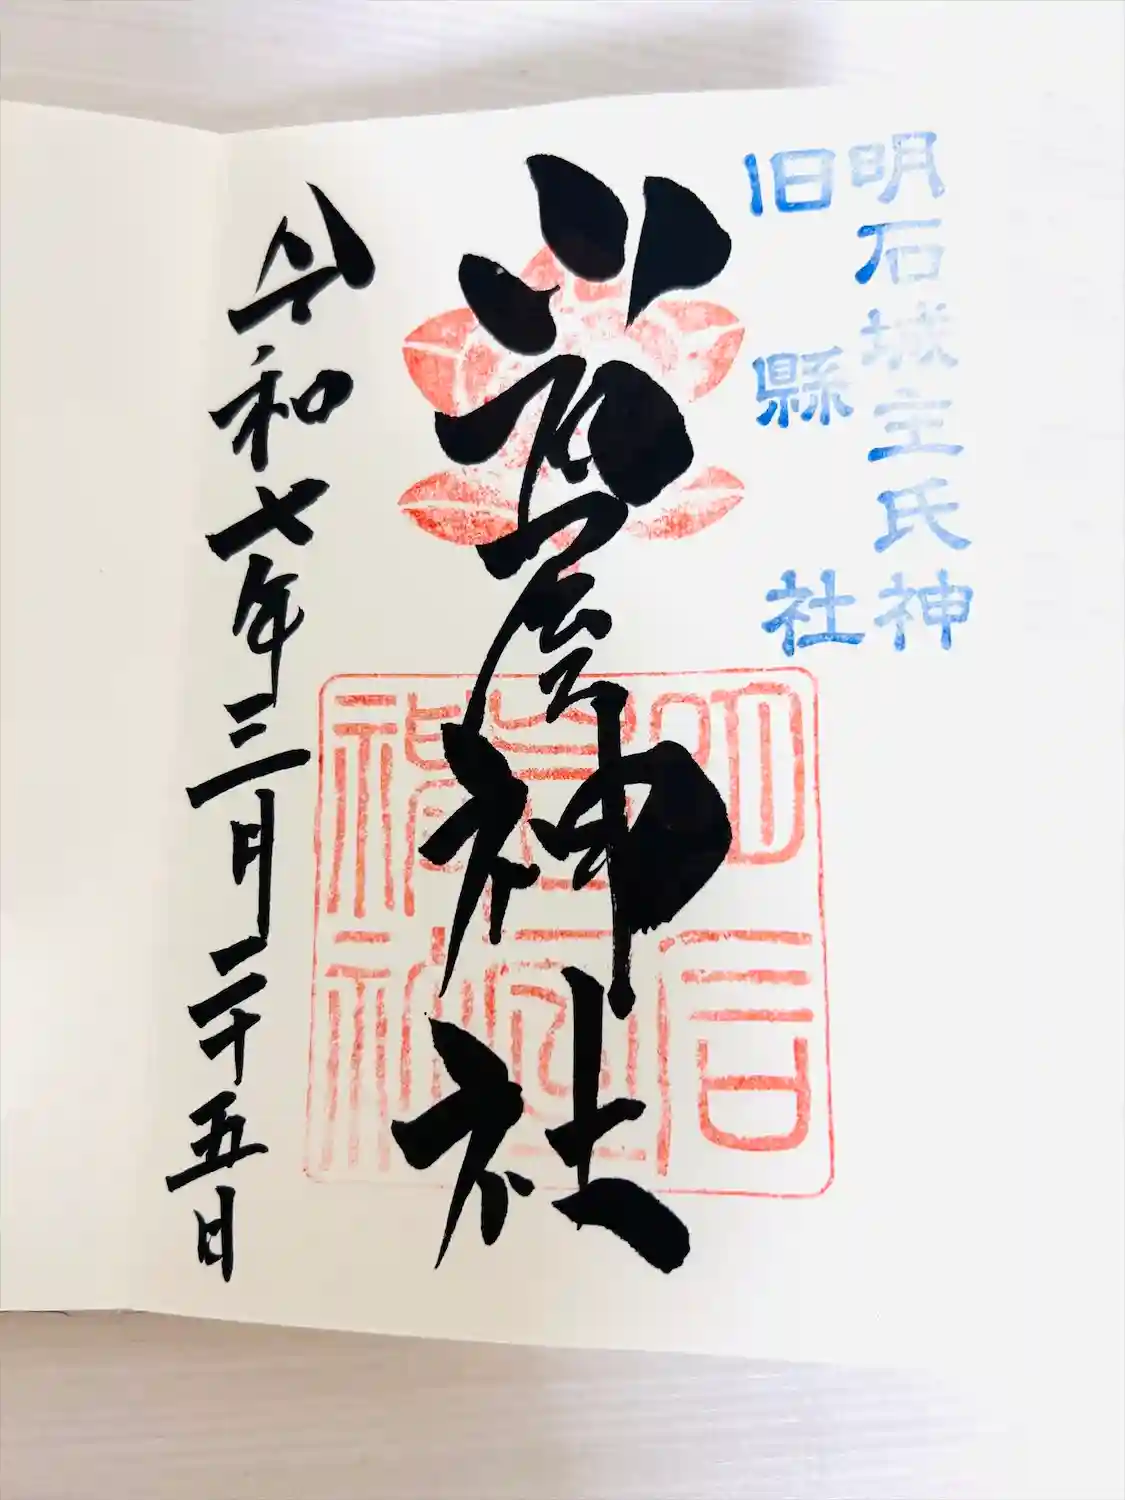 明石城主氏神
旧縣社
岩屋神社
令和七年三月二十五日
明石
岩屋
神社